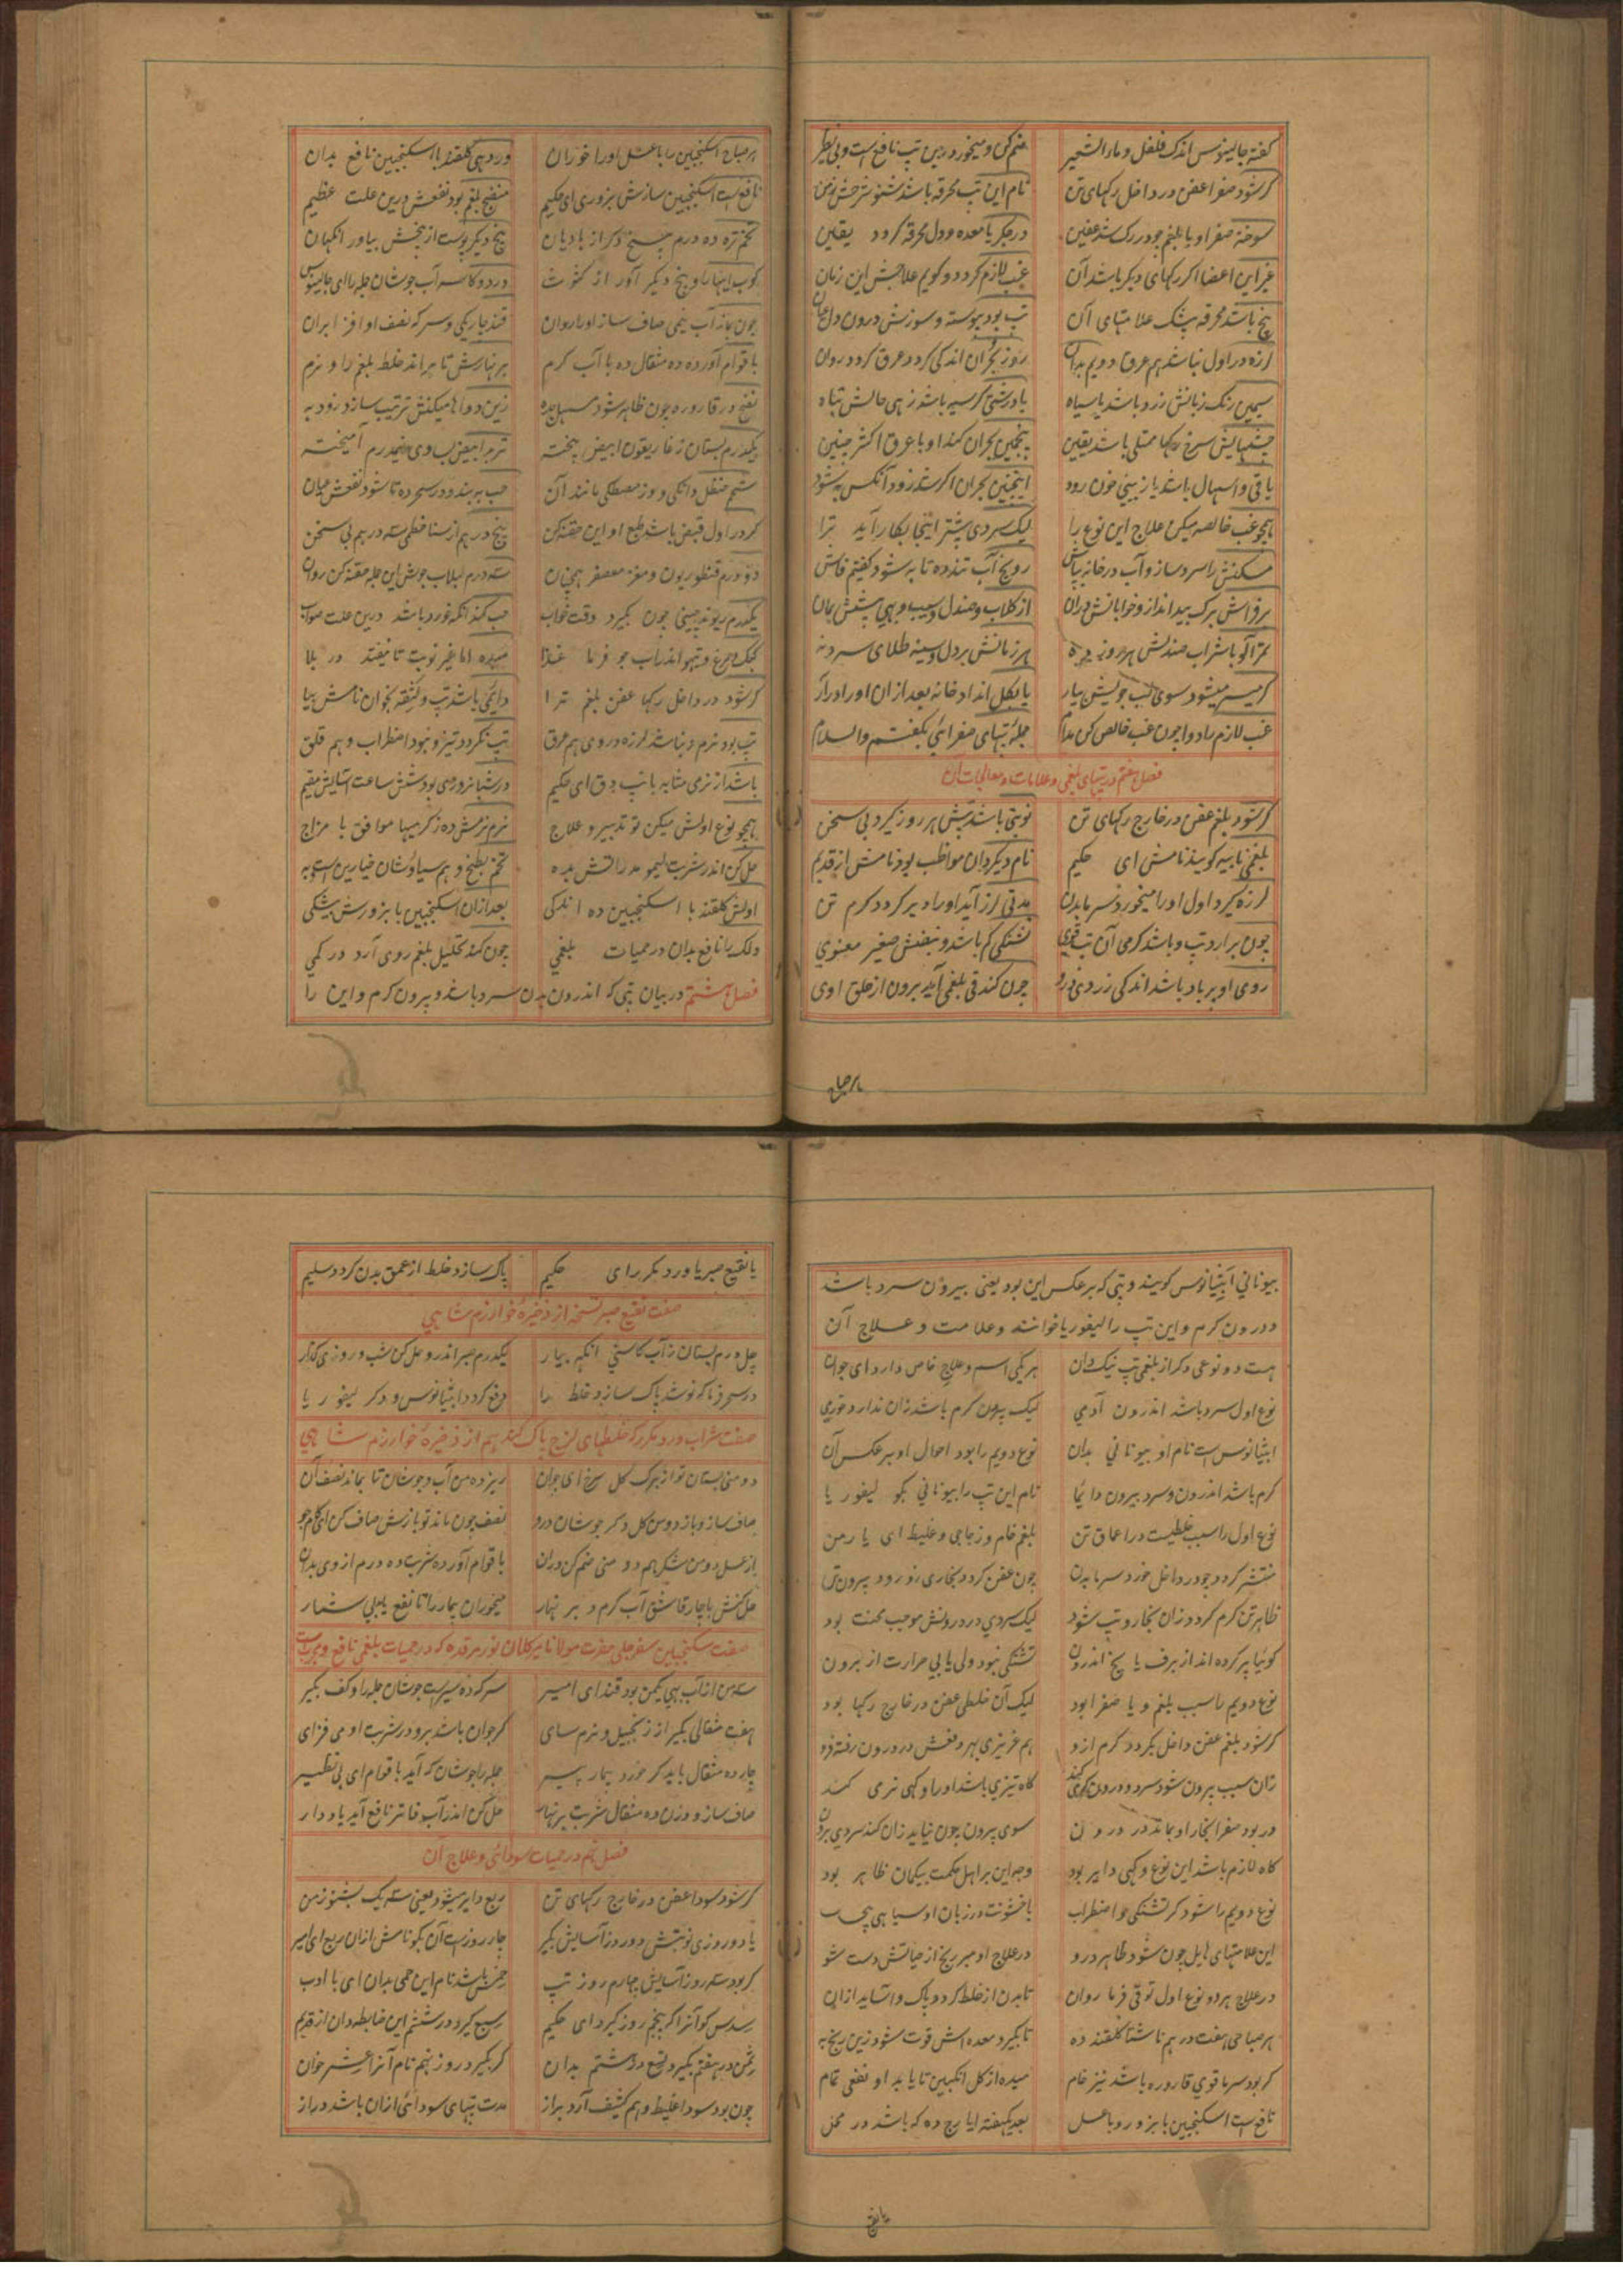 گفته جالینوس اندک فلفل و ماء الشعیر ضم کن و میخور درین تب نافع است و بی نظیر
گر شود صفرا عفن در داخل رگهای تن نام این تب محرقه باشد شنو شرحش ز من
سوخته صفرا و یا بلغم چو در رگ شد عفین در جگر یا معده و دل محرقه گردد یقین
غیر این اعضا اگر رگهای دیگر باشد آن غب لازم گردد و گویم علاجش این زمان
پنج باشد محرقه بیشک علامتهای آن تب بود پیوسته و سوزش درون دل
لرزه در اول نباشد هم عرق دویم بدان روز بحران اندکی گردد عرق گردد روان
سیمین رنگ زبانش زرد باشد یا سیاه با درشتی گرسیه باشد زهی حالش تباه
چشمهایش سرخ رگها ممتلی باشد یقین پنجمین بحران کند او با عرق اکثر چنین
یا قی و اسهال باشد یا ز بینی خون رود اینچنین بحران اگر شد زود آنکس به شود
همچو غب خالصه میکن علاج این نوع را لیک سردی بیشتر اینجا بکار آید ترا
مسکنش را سرد ساز و آب در خانه بپاش رو یخ آب تند ده تا به شود گفتیم فاش
بر فراش برگ بید انداز و خوابانش دران از گلاب و صندل و سیب و بهی پیشش بمان
هر زمانش بر دل و سینه طلای سرد نه
گر میسر میشود سوی لب جویش بیار یا بکل انداد خانه بعد ازان او را درآر
غب لازم را دوا چون غب خالص کن مدام جمله تبهای صفرائی بگفتم والسلام
فصل هفتم در تبهای بلغمی و علامات و معالجات آن
گر شود بلغم عفن در خارج رگهای تن نوبتی باشد تبش هر روز گیرد بی سخن
بلغمی نایبه گویند نامش ای حکیم نام دیگر دان مواظب بود نامش از قدیم
لرزه گیرد اول او را میخورد سرما بدن مدتی لرز آید او را دیر گردد گرم تن
چون برآرد تب و باشد گرمی آن تب قوی تشنگی کم باشد و نبضش صغیر معنوی
روی او بر باد باشد اندکی زردی درو چون کند قی بلغمی آید برون از حلق اوی
هر صباح
هر صباح اسکنجبین را با عسل او را خوران ور دهی گلقند با اسکنجبین نافع بدان
نافع است اسکنجبین سازش بزوری ای حکیم منضج بلغم بود نفعش درین علت عظیم
تخم تره ده درم بیخ دگر از بادیان بیخ دیگر پوست از بیخش بیاور آنگهان
کوب اینها را و بیخ دیگر آور از کشوت در دو کاسه آب جوشان جمله را ای جالینوس
چون بماند آب نیمی صاف ساز او را روان قند چاریکی و سرکه نصف او افزا بران
با قوام آور ده ده مثقال ده با آب گرم بر نهارش تا براند خلط بلغم را و نرم
نضج در قاروره چون ظاهر شود مسهل بده زین دواها میکنش ترتیب سازد زود به
یکدرم بستان ز غاریقون ابیض پخته تربد ابیض بوی نیمدرم آمیخته
شحم حنظل دانگی و وز مصطکی مانند آن حب به بند و در سحر ده تا شود نفعش عیان
گر در اول قبض باشد طبع او این حقنه کن پنج درهم از سنا خطمی سه درهم بی سخن
دو درم قنطوریون و مغز معصفر همچنان سه درم لبلاب جوش این جمله حقنه کن روان
یکدرم ریوند چینی چون بگیرد وقت خواب حب کند آنگه خورد باشد درین علت صواب
کبک و مرغ و تیهو اندر آب جو فرما غذا میده اما غیر نوبت تا نیفتد در بلا
گر شود در داخل رگها عفن بلغم ترا دایمی باشد تب و لثقه بخوان نامش بیا
تب بود نرم و نباشد لرزه در وی هم عرق تب نگردد تیز و نبود اضطراب و هم قلق
باشد از نرمی مشابه با تب دق ای حکیم در شبانروزی بود شش ساعت آسایش مقیم
همچو نوع اولش میکن تو تدبیر و علاج نرم نرمش ده ز گرمیها موافق با مزاج
حل کن اندر شربت لیمو مدر آتش بده تخم بطیخ و هم سیاوشان خیارین است به
اولش گلقند با اسکنجبین ده اندکی بعد ازان اسکنجبین با بزورش بیشکی
دلک را نافع بدان در حمیات بلغمی چون کند تحلیل بلغم روی آرد در کمی
فصل هشتم در بیان تبی که اندرون بدن سرد باشد و بیرون گرم و این را
بیونانی ابثیانوس گویند و تبی که بر عکس این بود یعنی بیرون سرد باشد
و درون گرم و این تب را لیفوریا خوانند و علامت و علاج آن
هست دو نوعی دگر از بلغمی تب نیک دان هر یکی اسم و علاج خاص دارد ای جوان
نوع اول سرد باشد اندرون آدمی لیک بیرون گرم باشد زان ندارد خرمی
ابثیانوس است نام او بیونانی بدان نوع دویم را بود احوال او بر عکس آن
گرم باشد اندرون و سرد بیرون دایما نام این تب را بیونانی بگو لیفوریا
نوع اول را سبب خلطیست در اعماق تن بلغم خام و زجاجی و غلیظ ای یار من
منتشر گردد چو در داخل خورد سرما بدن چون عفن گردد بخاری زو رود بیرون تن
ظاهر تن گرم گردد زان بخار و تب شود لیک سردی در درونش موجب محنت بود
گوئیا پر کرده اند از برف یا یخ اندرون تشنگی نبود ولی یابی حرارت از برون
نوع دویم را سبب بلغم و یا صفرا بود لیک آن خلطی عفن در خارج رگها بود
گر شود بلغم عفن داخل بگردد گرم ازو هم غریزی بهر دفعش در درون رفته فرو
زان سبب بیرون شود سرد و درون گرمی کند گاه تیزی باشد او را و گهی نرمی کند
ور بود صفرا بخار او بماند در درون سوی بیرون چون نیاید زان کند سردی برون
گاه لازم باشد این نوع و گهی دایر بود وجه این بر اهل حکمت بیگمان ظاهر بود
نوع دویم را شود گر تشنگی و اضطراب با خشونت در زبان او سیاهی بیحساب
این علامتهای هایل چون شود ظاهر درو در علاج او مبر رنج از حیاتش دست شو
در علاج هر دو نوع اول تو قی فرما روان تا بدن از خلط گردد پاک و آساید ازان
هر صباحی هفت درهم ناشتا گلقند ده تا بگیرد معده اش قوت شود زین رنج به
گر بود سرما قوی قاروره باشد نیز خام میده از گل انگبین تا یابد او نفعی تمام
نافع است اسکنجبین با بزور و با عسل بعد یکهفته ایارج ده که باشد در محل
یا نقیع
یا نقیع صبر یا ورد مکرر ای حکیم پاک سازد خلط از عمق بدن گردد سلیم
صفت نقیع صبر نسخه از ذخیره خوارزم شاهی
چل درم بستان ز آب کاسنی آنگه بیار یکدرم صبر اندرو حل کن شب و روزی گذار
در سحر فرما که نوشد پاک سازد خلط را دفع گردد ابثیانوس و دگر لیفوریا
صفت شراب ورد مکرر که خلطهای لزج پاک کند هم از ذخیره خوارزم شاهی
دو منی بستان تو از برگ گل سرخ ای جوان ریز ده من آب و جوشان تا بماند نصف آن
صاف ساز و باز دو من گل دگر جوشان درو نصف چون ماند تو بازش صاف کن ای کامجو
از عسل دو من شکر هم دو منی ضم کن دران با قوام آور ده شربت ده درم از وی بدان
حل کنش با چار قاشق آب گرم و بر نهار میخوران بیمار را تا نفع یابی بیشمار
صفت سکنجبین سفرجلی حضرت مولانا میرکلان نور مرقده که در حمیات بلغمی نافع و مجربست
سه من از آب بهی یکمن بود قند ای امیر سرکه ده سیر است جوشان جمله را و کف بگیر
هفت مثقالی بگیر از زنجبیل و نرم سای گر جوان باشد برو در شربت او می فزای
چارده مثقال باید گر خورد بیمار پیر جمله را جوشان که آید با قوام ای بی نظیر
صاف ساز و وزن ده مثقال شربت بر نهار حل کن اندر آب فاتر نافع آید یاد دار
فصل نهم در حمیات سودائی و علاج آن
گر شود سودا عفن در خارج رگهای تن ربع دایر میشود یعنی سه یک بشنو ز من
یا دو روزی نوبتش دو روز آسایش بگیر چار روز است آن بگو نامش ازان ربع ای امیر
گر بود سه روز آسایش چهارم روز تب خمس باشد نام این حمی بدان ای با ادب
سدس گو آنرا که پنجم روز گیرد ای حکیم سبع گیرد در ششم این ضابطه دان از قدیم
ثمن در هفتم بگیرد تسع در هشتم بدان گر بگیرد روز نهم نام آنرا عشر خوان
چون بود سودا غلیظ و هم کثیف آرد براز مدت تبهای سودائی ازان باشد دراز